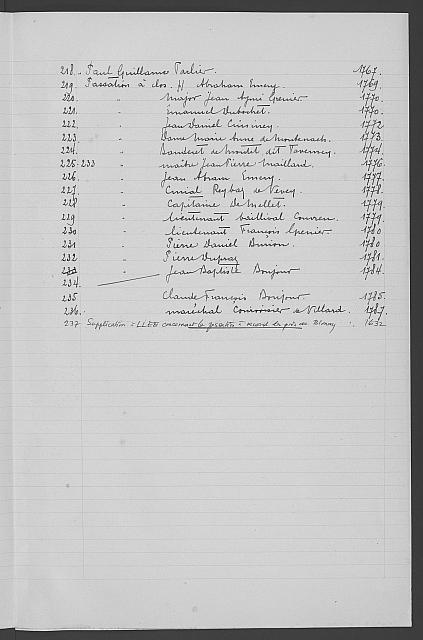 218. Paul Guillaume Tarlier. 1767.
219. Passation à clos. p/ Abraham Emery. 1769.
220. " Major Jean Grenier 1770.
221. " Emanuel Dubochet. 1770.
222. " Jean Daniel 1772
223. " Dame Marie Anne de Montenach. 1773.
224. " Banderet de dit Taverney. 1774.
225-233 " maître Jean Pierre Maillard. 1776.
226. " Jean Abram Emery. 1777.
227. " de Vevey. 1778.
228 " Capitaine De Mellet. 1779.
229 " lieutenant baillival Couvreu. 1779.
230 " lieutenant François Grenier 1780
231 " Pierre Daniel 1780
232 " Pierre Dupraz 1781.
233 " Jean Baptiste Bonjour 1784.
234.
235. Claude François Bonjour. 1785.
236. maréchal à Villard. 1787.
237 Supplication à LLEE concernant à de Blonay 1632